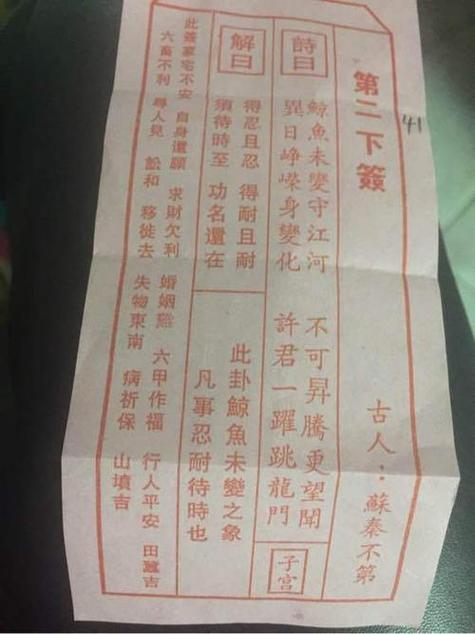 41
第二下簽 古人：蘇秦不第
詩曰
鯨魚未變守江河 不可昇騰更望聞
異日崢嶸身變化 許君一躍跳龍門
子宮
解曰
得忍且忍 得耐且耐
須待時至 功名還在
此卦鯨魚未變之象
凡事忍耐待時也
此簽家宅不安 自身還願 求財欠利 婚姻難 六甲作福 行人平安 田蠶吉
六畜不利 尋人見 訟和 移徙去 失物東南 病祈保 山墳吉